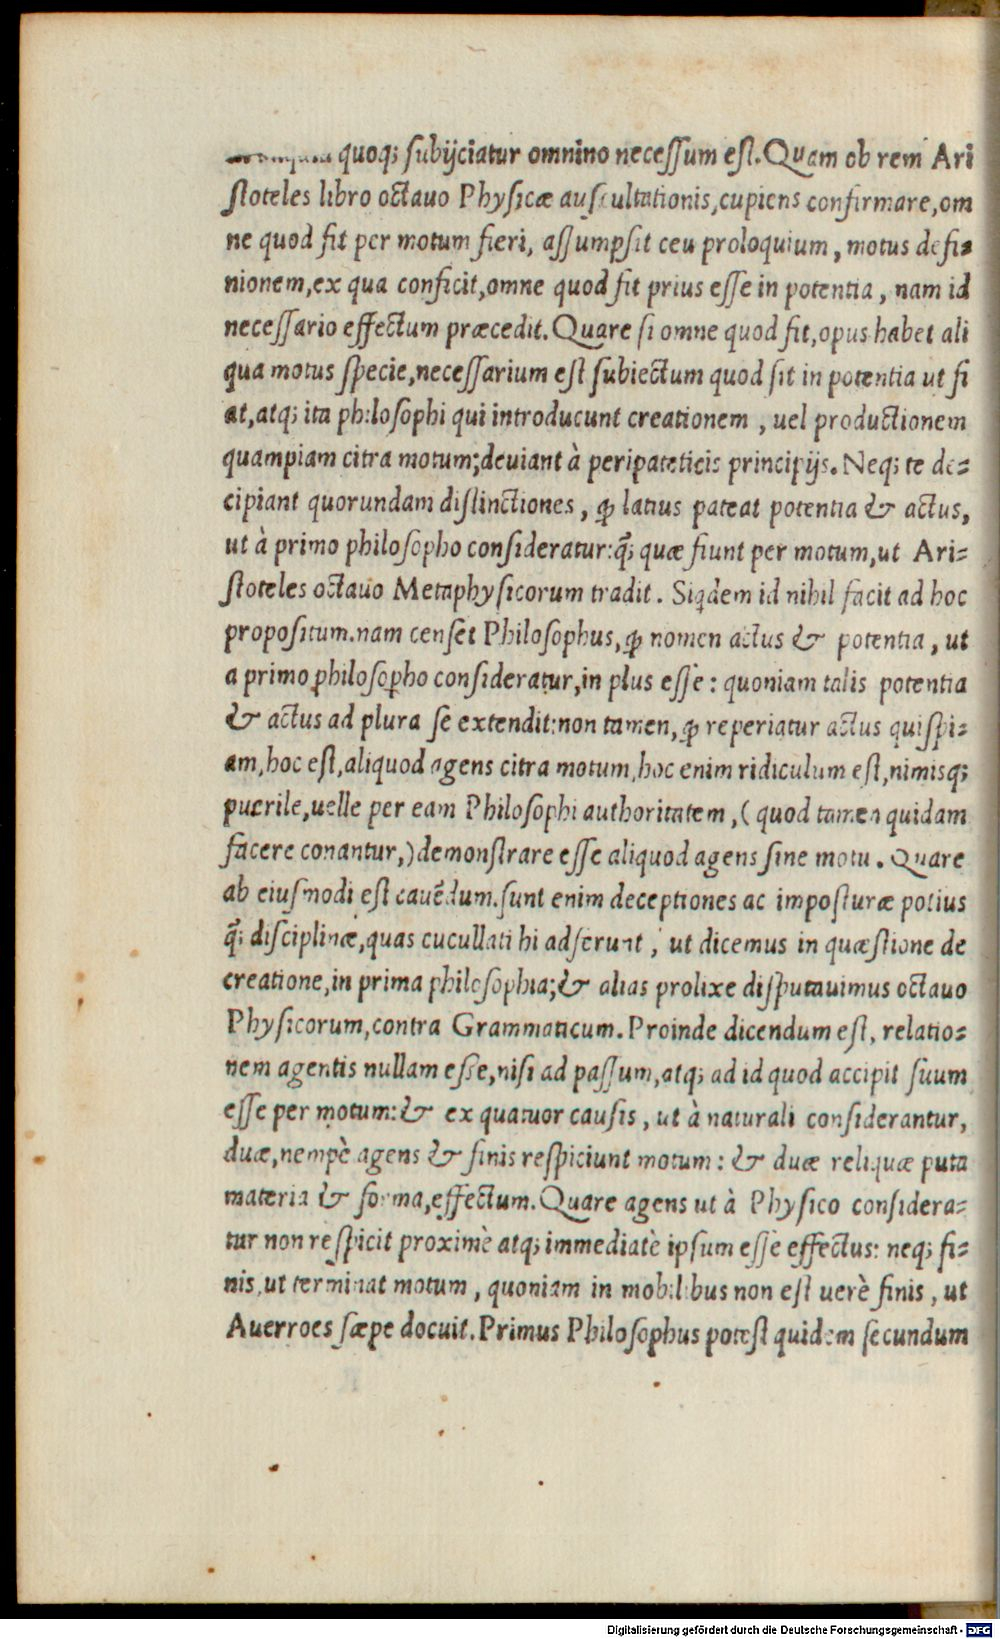 quoq; subijciatur omnino necessum est. Quam ob rem Ari
stoteles libro octauo Physicæ auscultationis, cupiens confirmare, om
ne quod fit per motum fieri, assumpsit ceu proloquium, motus defi-
nionem, ex qua conficit, omne quod fit prius esse in potentia, nam id
necessario effectum præcedit. Quare si omne quod fit, opus habet ali
qua motus specie, necessarium est subiectum quod sit in potentia ut fi
at, atq; ita philosophi qui introducunt creationem, uel productionem
quampiam citra motum; deuiant à peripateticis principijs. Neq; te de-
cipiant quorundam distinctiones, ꝙ latius pateat potentia & actus,
ut à primo philosopho consideratur: q̃; quæ fiunt per motum, ut Ari-
stoteles octauo Metaphysicorum tradit. Siqdem id nihil facit ad hoc
propositum. nam censet Philosophus, ꝙ nomen actus & potentia, ut
a primo philosopho consideratur, in plus esse: quoniam talis potentia
& actus ad plura se extendit: non tamen, ꝙ reperiatur actus quispi-
am, hoc est, aliquod agens citra motum, hoc enim ridiculum est, nimisq;
puerile, uelle per eam Philosophi authoritatem, (quod tamen quidam
facere conantur,) demonstrare esse aliquod agens sine motu. Quare
ab eiusmodi est cauẽdum. sunt enim deceptiones ac imposturæ potius
q̃; disciplinæ, quas cucullati hi adserunt, ut dicemus in quæstione de
creatione, in prima philosophia; & alias prolixe disputauimus octauo
Physicorum, contra Grammaticum. Proinde dicendum est, relatio-
nem agentis nullam esse, nisi ad passum, atq; ad id quod accipit suum
esse per motum: & ex quatuor causis, ut à naturali considerantur,
duæ, nempè agens & finis respiciunt motum: & duæ reliquæ puta
materia & forma, effectum. Quare agens ut à Physico considera-
tur non respicit proximè atq; immediatè ipsum esse effectus: neq; fi-
nis, ut terminat motum, quoniam in mobilibus non est uerè finis, ut
Auerroes sæpe docuit. Primus Philosophus potest quidem secundum
Digitalisierung gefördert durch die Deutsche Forschungsgemeinschaft - DFG